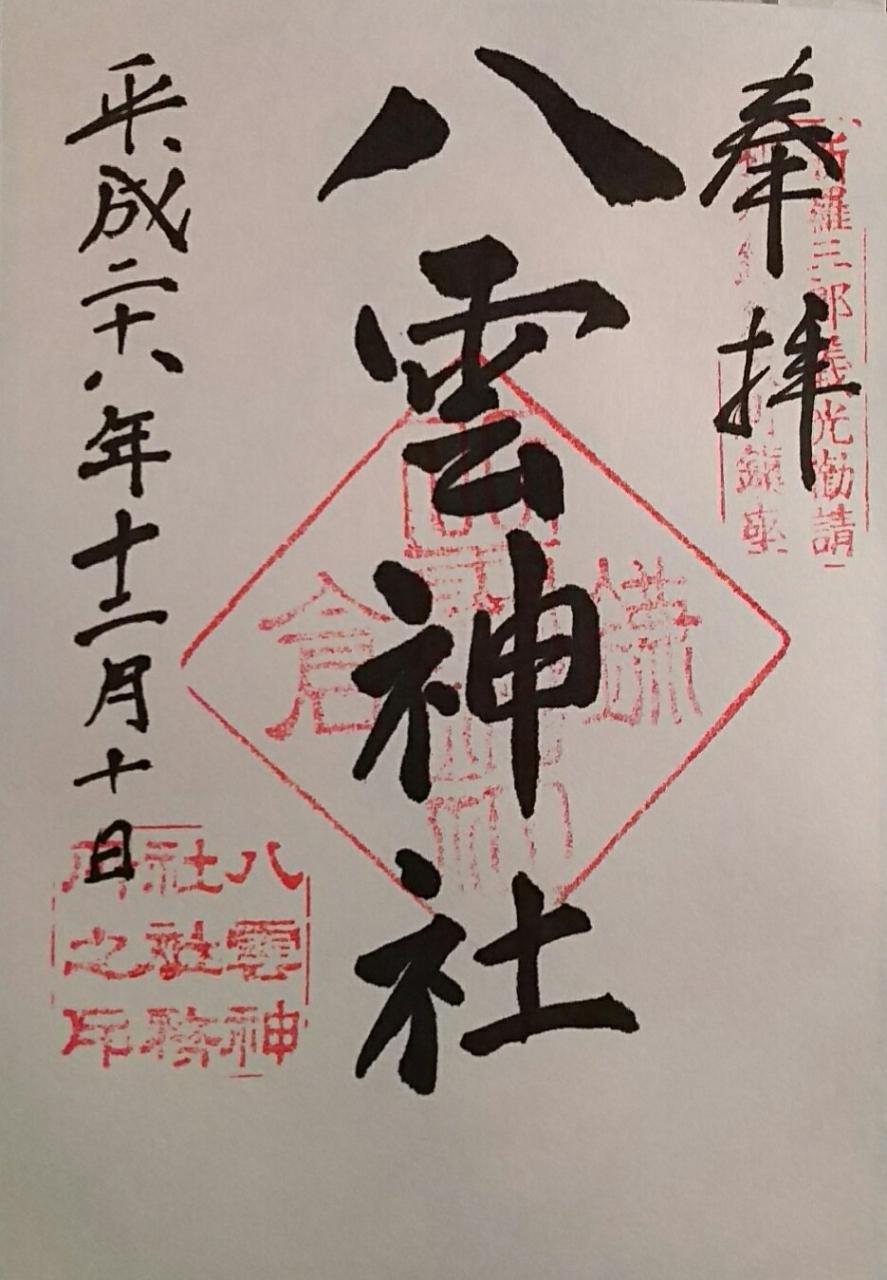 奉拝
新羅三郎義光勧請
八雲神社
鎌倉
平成二十八年十二月十日
八雲神
社社務
所之印